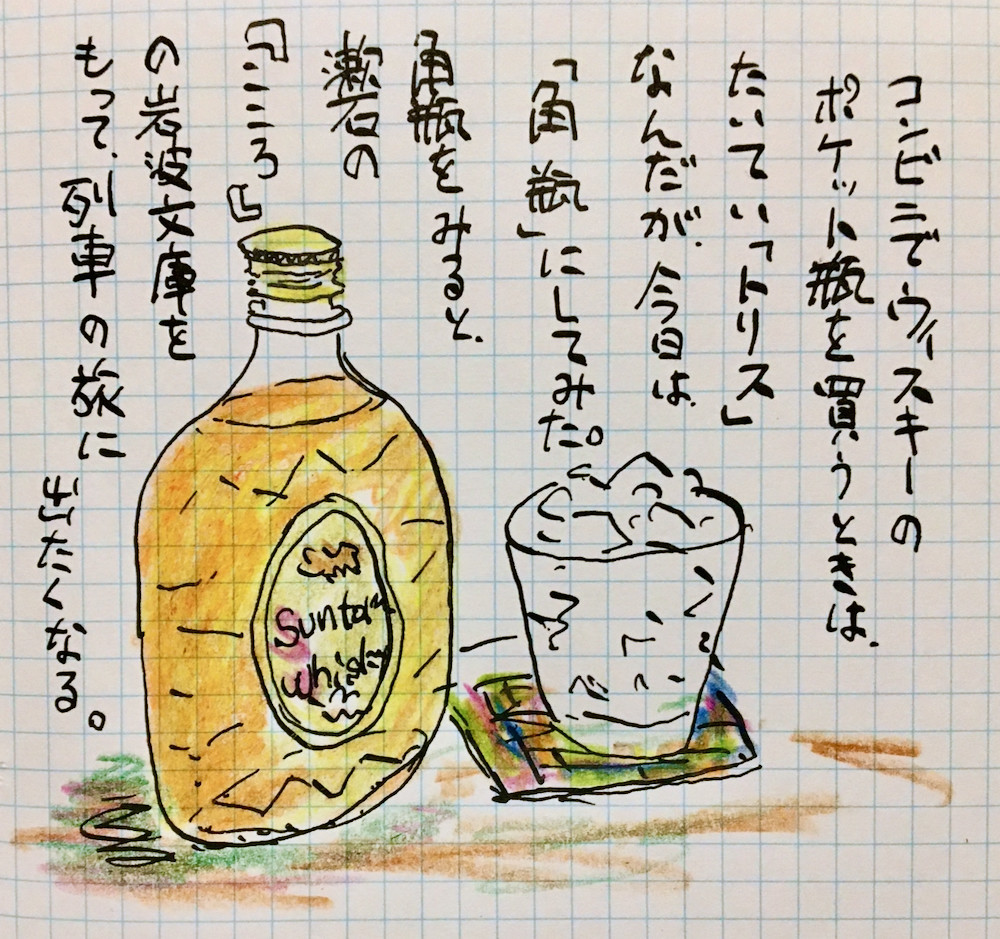 コンビニでウィスキーの
ポケット瓶を買うときは、
たいてい「トリス」
なんだが、今日は、
「角瓶」にしてみた。
角瓶をみると、
漱石の
『こころ』
の岩波文庫を
もって、列車の旅に
出たくなる。
Suntory
Whisky